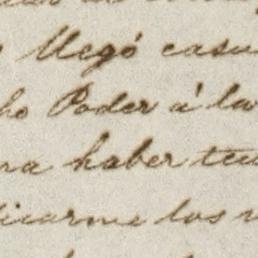 llegó casu
ho Poder á la
ra haber ten
dicarme los v